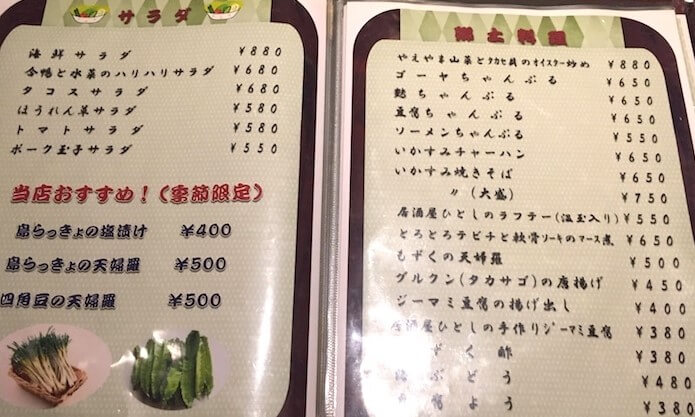 サラダ
海鮮サラダ ¥880
合鴨と水菜のハリハリサラダ ¥680
タコスサラダ ¥680
ほうれん草サラダ ¥580
トマトサラダ ¥580
ポーク玉子サラダ ¥550
当店おすすめ!(季節限定)
島らっきょの塩漬け ¥400
島らっきょの天婦羅 ¥500
四角豆の天婦羅 ¥500
郷土料理
やえやま山菜とタカセ貝のオイスター炒め ¥880
ゴーヤちゃんぷる ¥650
麩ちゃんぷる ¥650
豆腐ちゃんぷる ¥650
ソーメンちゃんぷる ¥550
いかすみチャーハン ¥650
いかすみ焼きそば ¥650
〃(大盛) ¥750
居酒屋ひとしのラフテー(温玉入り) ¥550
とろとろテビチと軟骨ソーキのマース煮 ¥650
もずくの天婦羅 ¥500
グルクン(タカサゴ)の唐揚げ ¥450
ジーマミ豆腐の揚げ出し ¥400
居酒屋ひとしの手作りジーマミ豆腐 ¥380
ずく酢 ¥380
ぶどう ¥480
よう ¥380